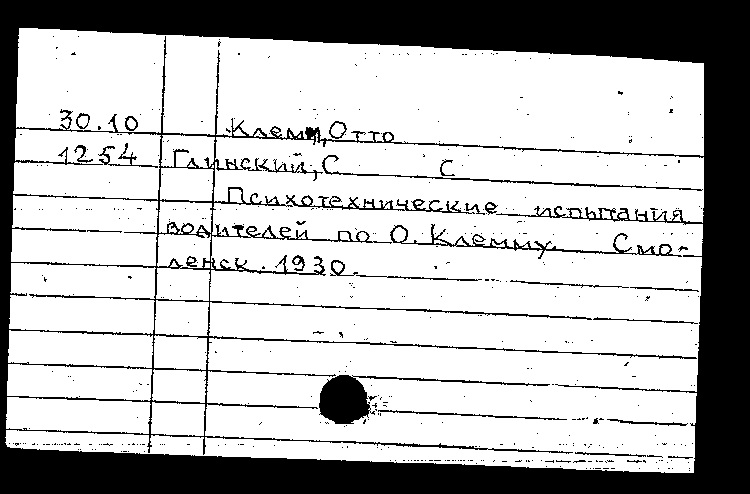 30.10 Клемм, Отто
1254 Глинский, С С
Психотехнические испытания
водителей по О. Клемму. Смо-
ленск. 1930.